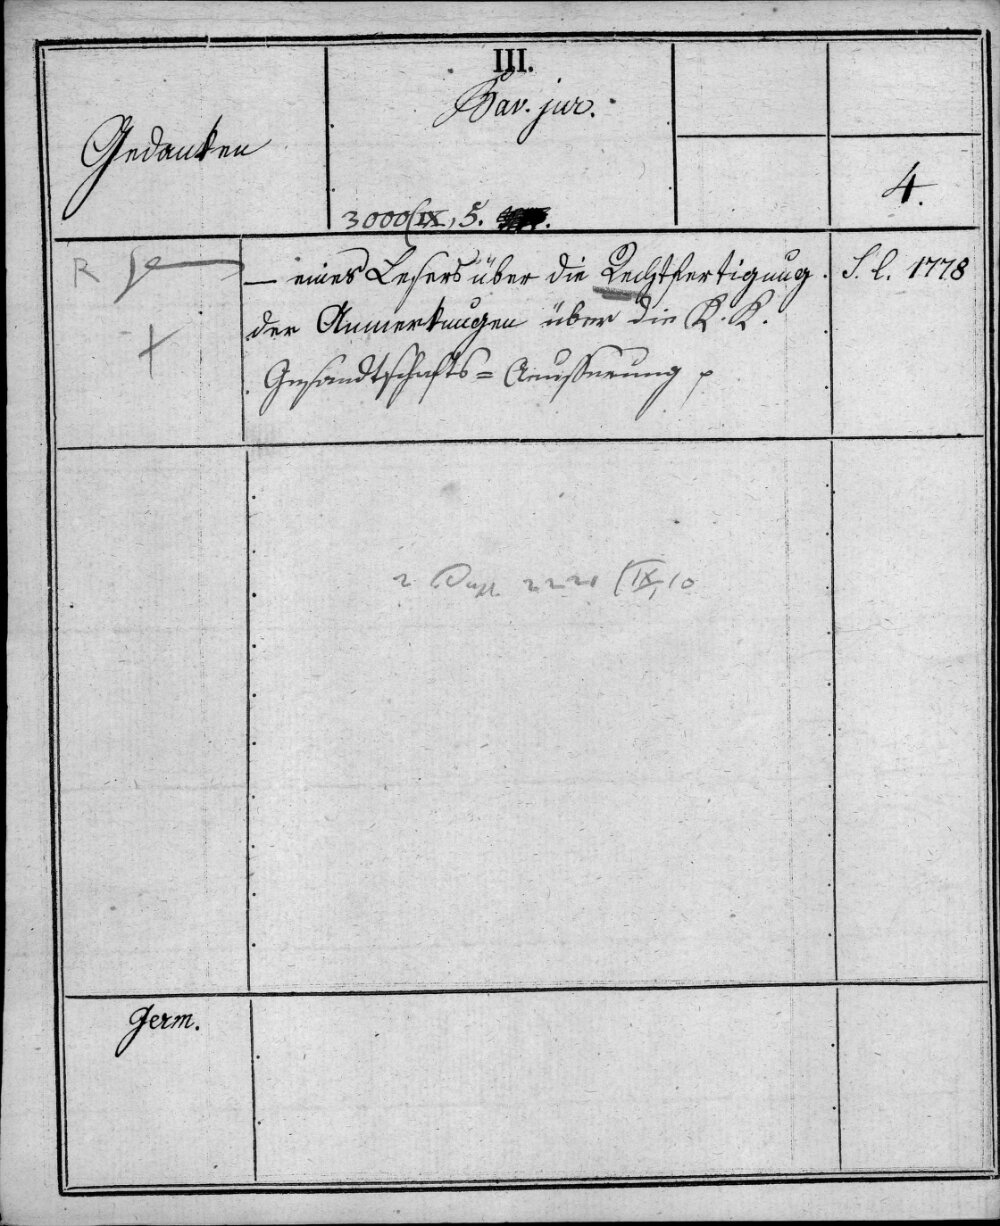 III.
Bav. jur.
Gedanken
4.
3000(IX, 5.
R
— eines Lesers über die Rechtfertigung
S. l. 1778
der Anmerkungen über die K. K.
Gesandtschafts=Aeusserung
2 Dupl. (IX, 10
Germ.